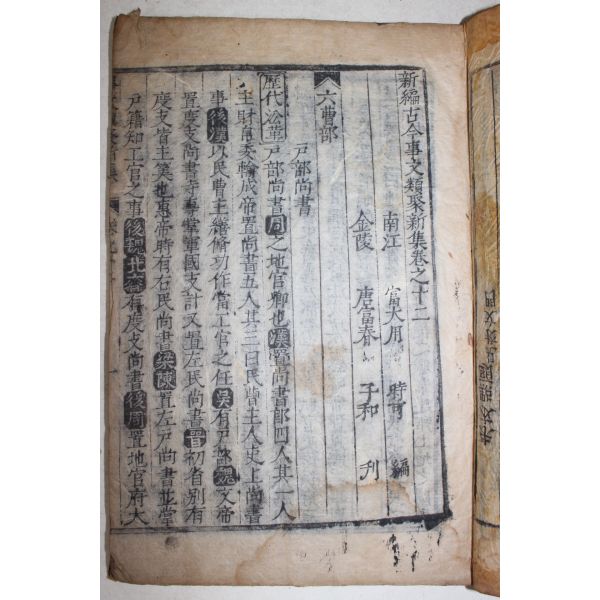 新編古今事文類聚新集卷之十二
南江 富大用 時可 編
金陵 唐富春 子和 刋
六曹部
戶部尚書
歷代沿革戶部尚書周之地官卿也漢置尚書郎四人其一人
主財帛委輸成帝置尚書五人其三曰民曹主人吏上尚書
事後漢以民曹主繕修功作當工官之任吳有戶部魏文帝
置度支尚書寺專掌軍國支計又置左民尚書晉初省別有
度支皆主筭也惠帝時有右民尚書梁陳置左戶尚書並掌
戶籍知工官之事後魏北齊有度支尚書後周置地官府大